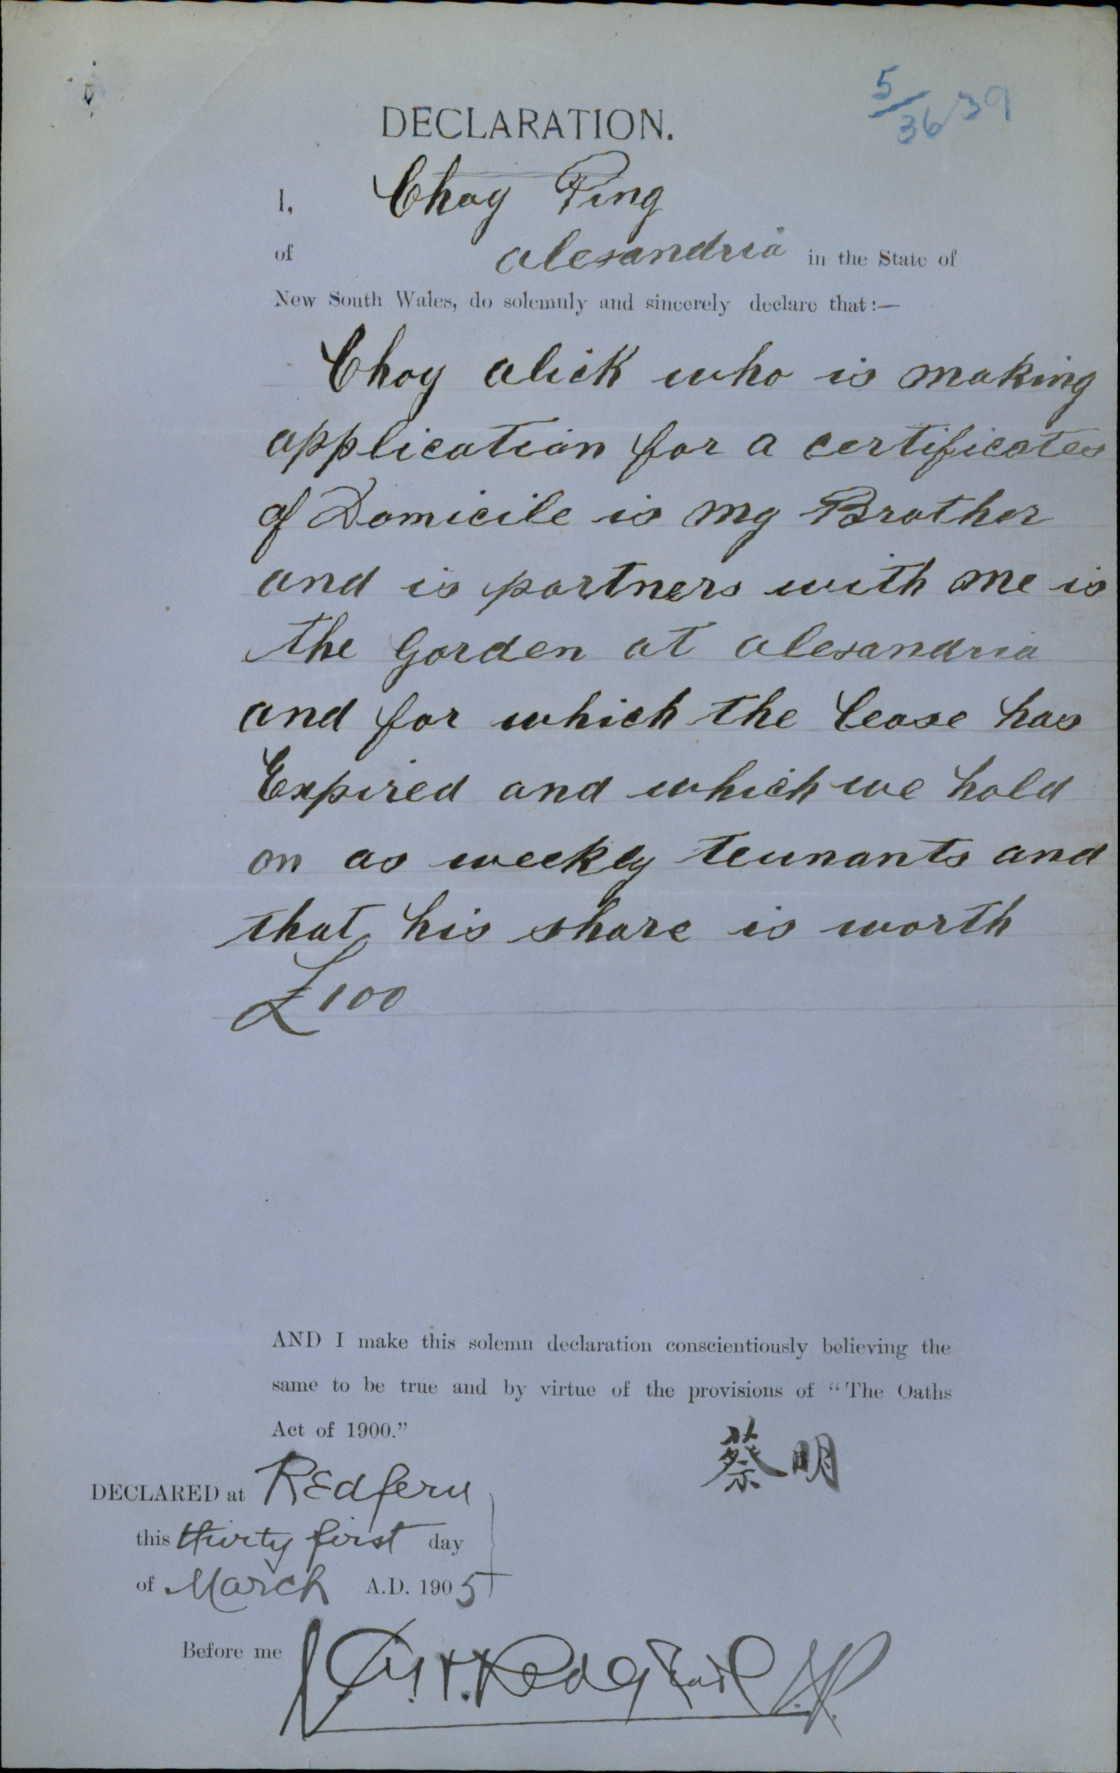 5/3639
DECLARATION.
I, Choy Ping
of Alexandria in the State of
New South Wales, do solemnly and sincerely declare that:—
Choy Alick who is making
application for a certificates
of Domicile is my Brother
and is partners with me is
the Gorden at Alexandria
and for which the lease has
Expired and which we hold
on as weekly tennants and
that his share is worth
£100
AND I make this solemn declaration conscientiously believing the
same to be true and by virtue of the provisions of "The Oaths
Act of 1900."
蔡明
DECLARED at Redfern
this thirty first day
of March A.D. 1905
Before me